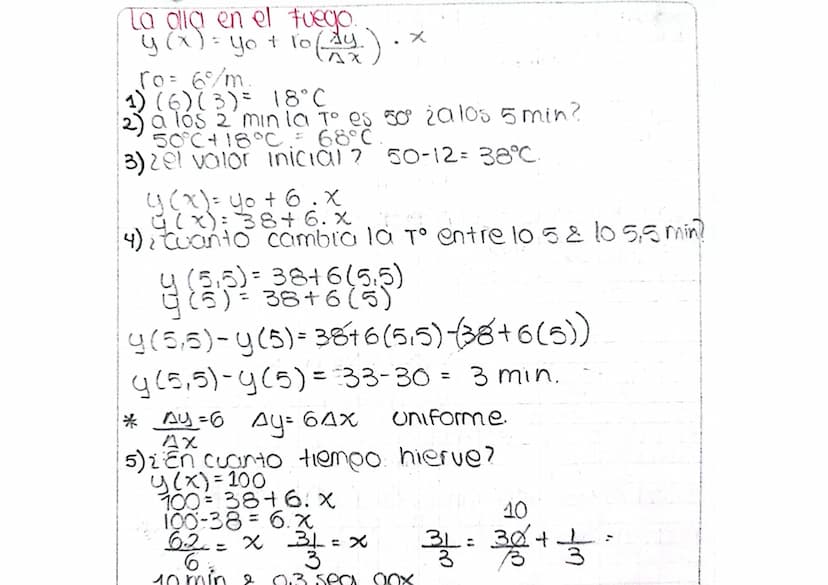 La olla en el fuego.
y(x) = yo + ro (Δy/Δx) · x
ro = 6°/m
1) (6)(3) = 18°C
2) a los 2 min la T° es 50° ¿a los 5 min?
50°C + 18°C = 68°C.
3) ¿el valor inicial? 50-12 = 38°C.
y(x) = yo + 6 . x
y(x) = 38 + 6. x
4) ¿Cuanto cambia la T° entre lo 5 & lo 5,5 min?
y(5,5) = 38+6(5,5)
y(5) = 38+6(5)
y(5,5) - y(5) = 38+6(5,5) - (38+6(5))
y(5,5) - y(5) = 33-30 = 3 min.
* Δy/Δx = 6 Δy = 6Δx uniforme.
5) ¿En cuanto tiempo hierve?
y(x) = 100
100 = 38 + 6. x
100-38 = 6. x
10
62/6 = x 31/3 = x 31/3 = 30/3 + 1/3 =
10 min & 0,3 seg apx